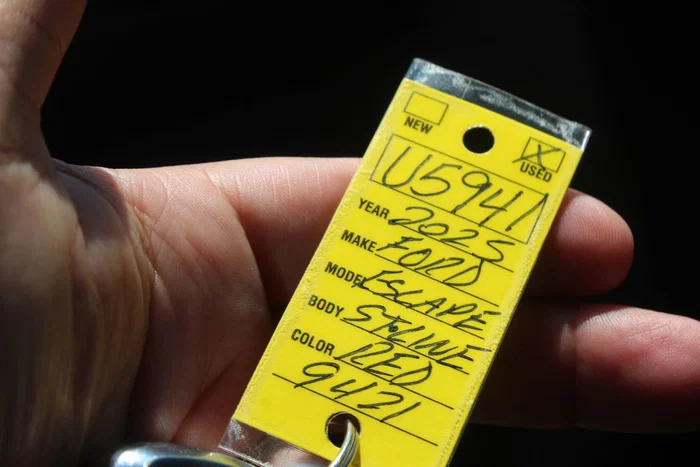 NEW X USED
U5941
YEAR 2025
MAKE FORD
MODEL ESCAPE
BODY STLINE
COLOR RED
9421